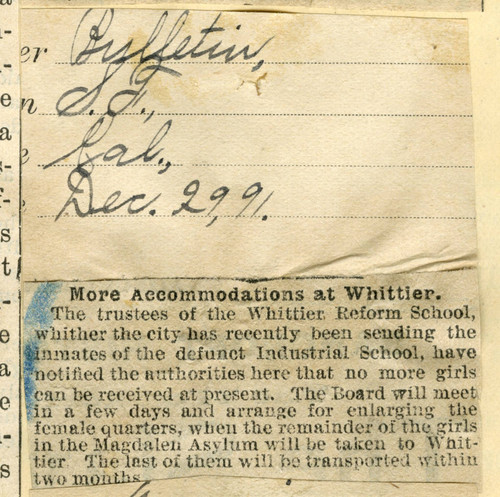 er Bulletin,
n S. F.,
Cal.,
Dec. 29, 91.
More Accommodations at Whittier.
The trustees of the Whittier Reform School,
whither the city has recently been sending the
inmates of the defunct Industrial School, have
notified the authorities here that no more girls
can be received at present. The Board will meet
in a few days and arrange for enlarging the
female quarters, when the remainder of the girls
in the Magdalen Asylum will be taken to Whit-
tier. The last of them will be transported within
two months